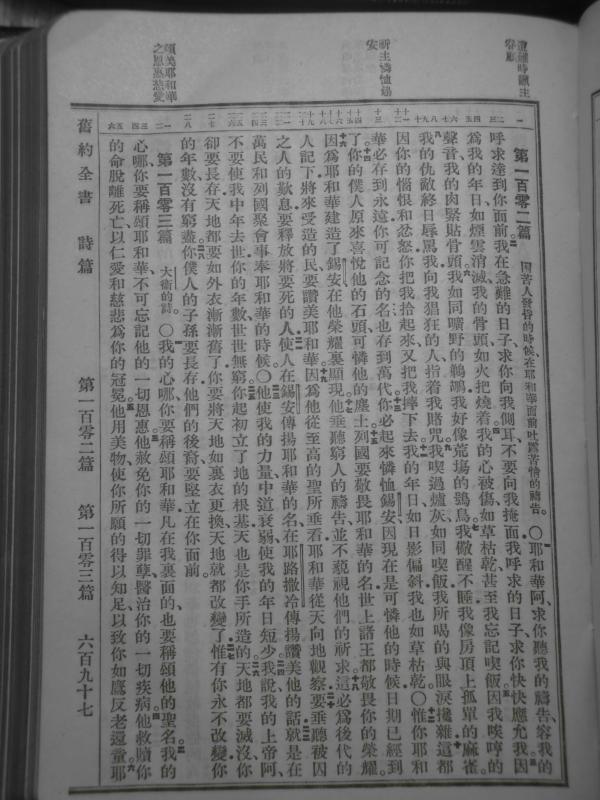 遭難時籲主
祈主憐恤錫
安
頌美耶和華
之恩惠慈愛
第一百零二篇 困苦人發昏的時候在耶和華面前吐露苦情的禱告。〇耶和華阿求你聽我的禱告容我的
呼求達到你面前我在急難的日子求你向我側耳不要向我掩面我呼求的日子求你快快應允我因
為我的年日如煙雲消滅我的骨頭如火把燒着我的心被傷如草枯乾甚至我忘記喫飯因我唉哼的
聲音我的肉緊貼骨頭我如同曠野的鵜鶘我好像荒塲的鴞鳥我儆醒不睡我像房頂上孤單的麻雀
我的仇敵終日辱罵我向我猖狂的人指着我賭咒我喫過爐灰如同喫飯我所喝的與眼淚攙雜這都
因你的惱恨和忿怒你把我拾起來又把我摔下去我的年日如日影偏斜我也如草枯乾〇惟你耶和
華必存到永遠你可記念的名也存到萬代你必起來憐恤錫安因現在是可憐他的時候日期已經到
了你的僕人原來喜悅他的石頭可憐他的塵土列國要敬畏耶和華的名世上諸王都敬畏你的榮耀
因為耶和華建造了錫安在他榮耀裏顯現他垂聽窮人的禱告並不藐視他們的祈求這必為後代的
人記下將來受造的民要讚美耶和華因為他從至高的聖所垂看耶和華從天向地觀察要垂聽被囚
之人的歎息要釋放將要死的人使人在錫安傳揚耶和華的名在耶路撒冷傳揚讚美他的話就是在
萬民和列國聚會事奉耶和華的時候〇他使我的力量中道衰弱使我的年日短少我說我的上帝阿
不要使我中年去世你的年數世世無窮你起初立了地的根基天也是你手所造的天地都要滅沒你
卻要長存天地都要如外衣漸漸舊了你要將天地如裏衣更換天地就都改變了惟有你永不改變你
的年數沒有窮盡你僕人的子孫要長存他們的後裔要堅立在你面前
第一百零三篇 大衛的詩。〇我的心哪你要稱頌耶和華凡在我裏面的也要稱頌他的聖名我的
心哪你要稱頌耶和華不可忘記他的一切恩惠他赦免你的一切罪孽醫治你的一切疾病他救贖你
的命脫離死亡以仁愛和慈悲為你的冠冕他用美物使你所願的得以知足以致你如鷹反老還童耶
舊約全書 詩篇 第一百零二篇 第一百零三篇 六百九十七